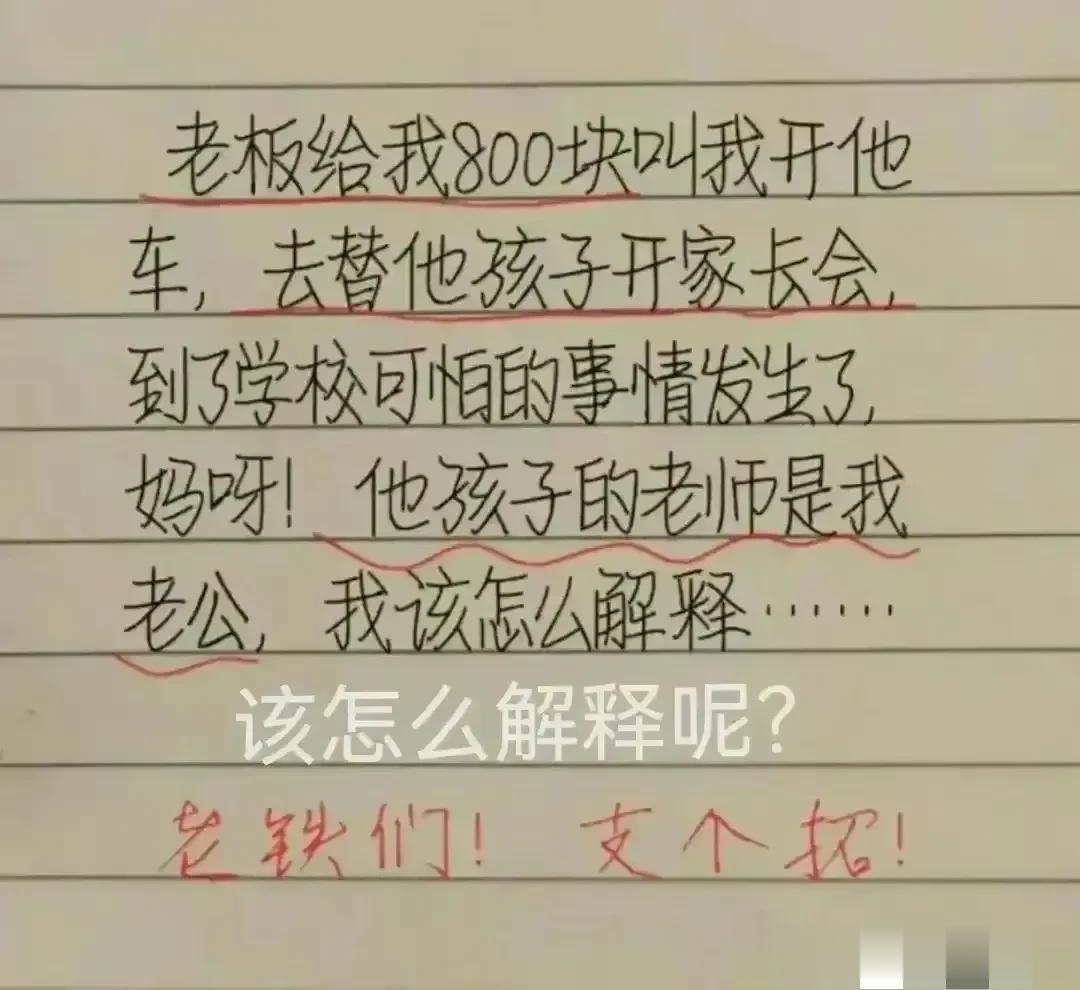 老板给我800块叫我开他
车，去替他孩子开家长会，
到了学校可怕的事情发生了，
妈呀！他孩子的老师是我
老公，我该怎么解释……
该怎么解释呢？
老铁们！支个招！